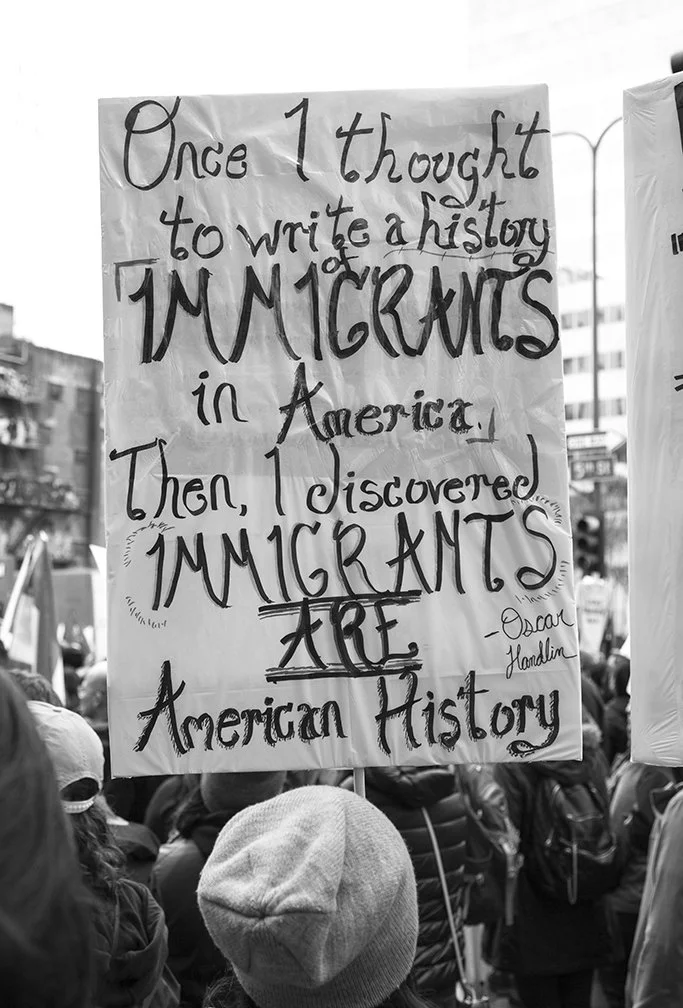 Once I thought
to write a history
of
IMMIGRANTS
in America.
Then, I discovered
IMMIGRANTS
ARE
-Oscar
Handlin
American History